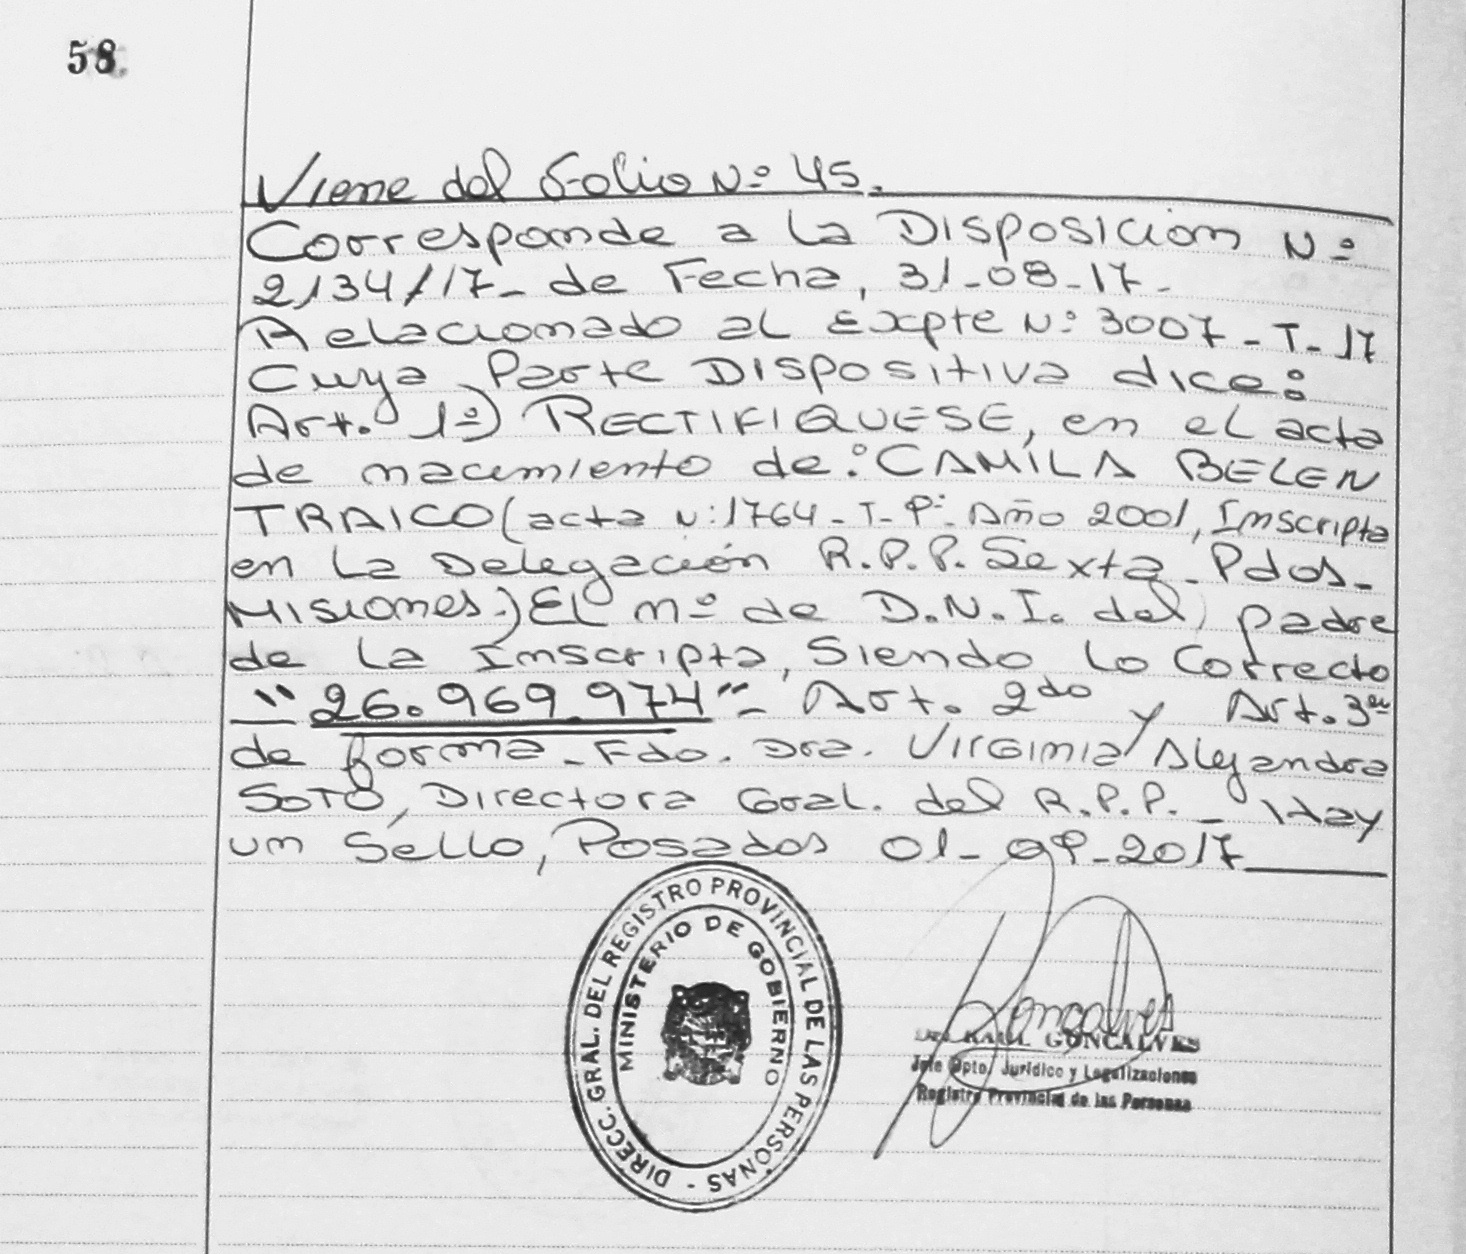 58.
Viene del Folio Nº 45.
Corresponde a la Disposicion Nº
2134/17- de Fecha, 31-08-17-
Relacionado al Expte Nº 3007-T-17
Cuya Parte Dispositiva dice:
Art. 1º) RECTIFIQUESE, en el acta
de nacimiento de: CAMILA BELEN
TRAICO (acta Nº 1764-T-Pº- Año 2001, Inscripta
en La Delegación R.P.P. Sexta-Pdos-
Misiones.) El nº de D.N.I. del padre
de La Inscripta, Siendo Lo Correcto
"26.969.974"- Art. 2do y Art. 3er
de forma- Fdo. Dra. Virginia Alejandra
Soto, Directora Gral. del R.P.P.- Hay
un Sello, Posadas 01-09-2017
DIRECC. GRAL. DEL REGISTRO PROVINCIAL DE LAS PERSONAS -
MINISTERIO DE GOBIERNO
Goncalves
RAUL GONCALVES
Jefe Dpto. Jurídico y Legalizaciones
Registro Provincial de las Personas